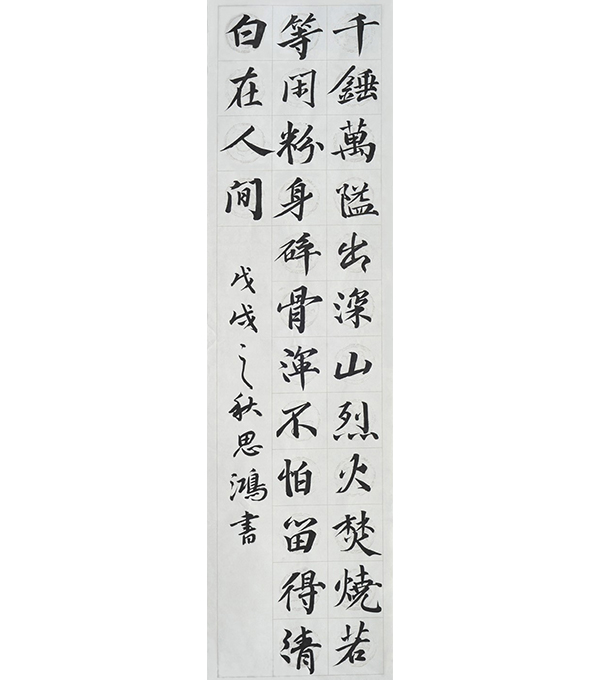 千錘萬隘出深山烈火焚燒若
等闲粉身碎骨渾不怕留得清
白在人间
戊戌之秋思鴻書